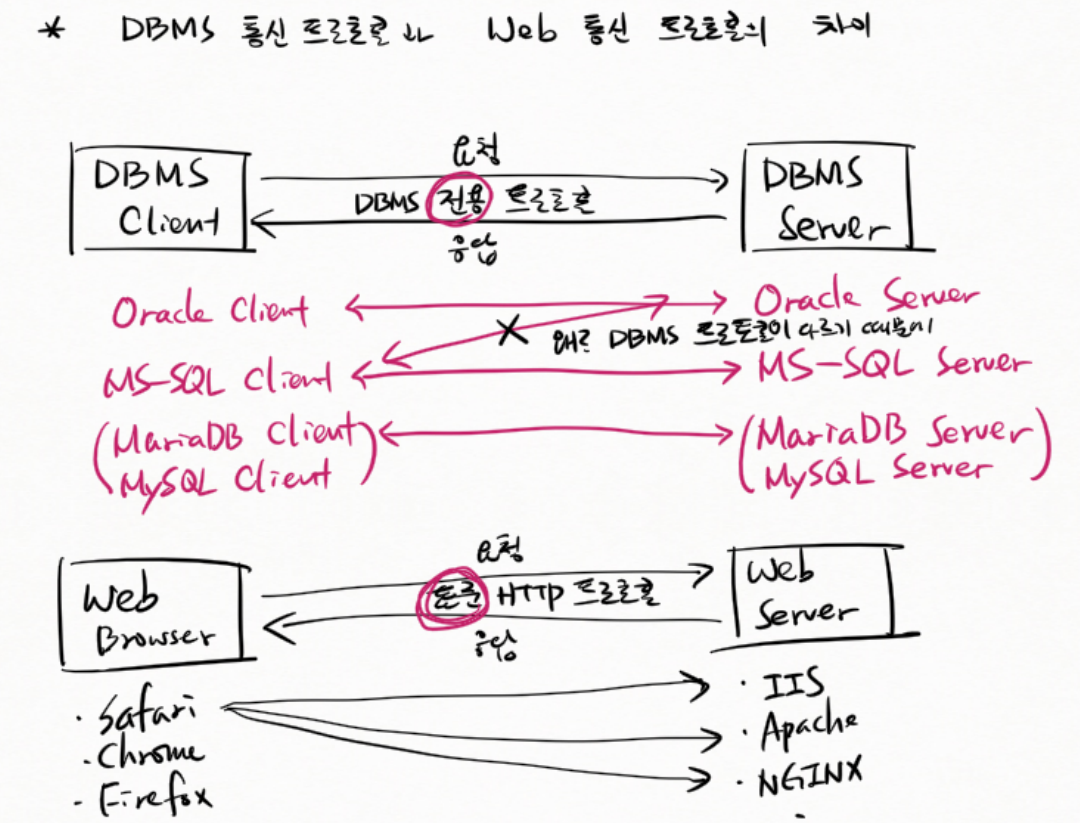 * DBMS 통신 프로토콜과 Web 통신 프로토콜의 차이
요청
DBMS Client
DBMS 전용 프로토콜
DBMS Server
응답
Oracle Client
Oracle Server
X 왜? DBMS 프로토콜이 다르기 때문에
MS-SQL Client
MS-SQL Server
(MariaDB Client
MySQL Client)
(MariaDB Server
MySQL Server)
요청
Web Browser
표준 HTTP 프로토콜
Web Server
응답
· Safari
· Chrome
· Firefox
· IIS
· Apache
· NGINX